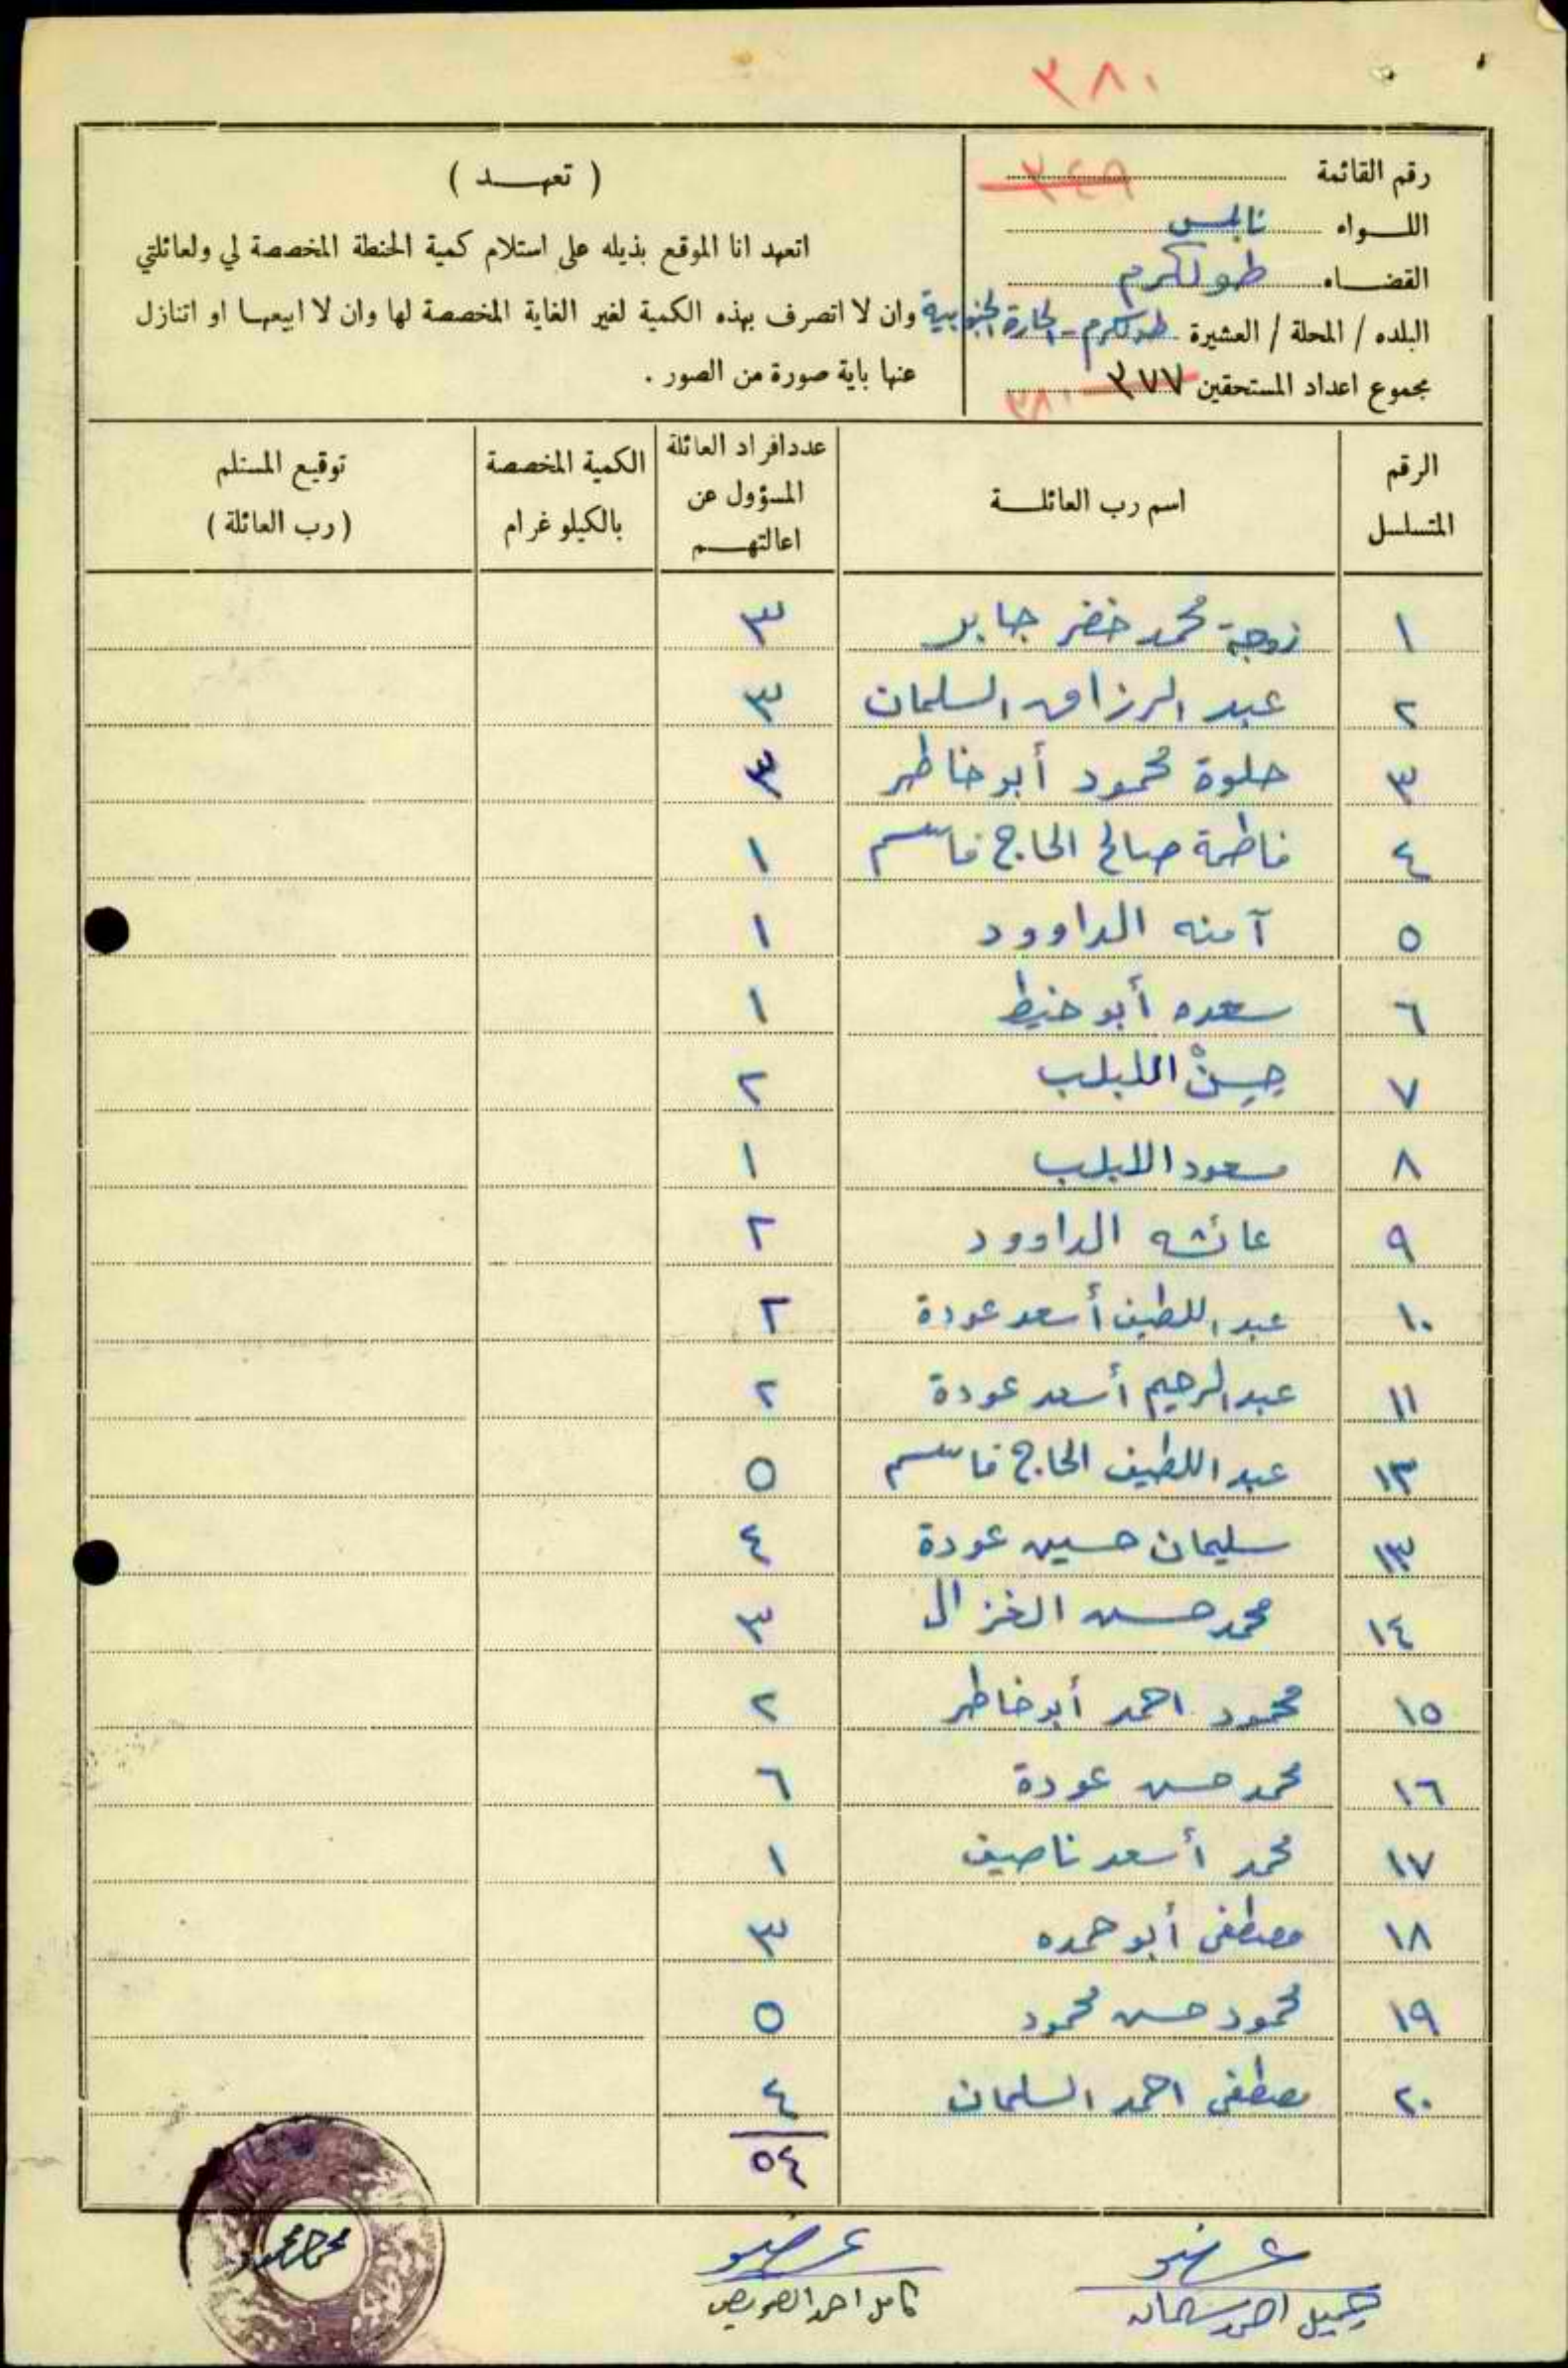 ٣٨٠
رقم القائمة ٣٤٩
اللـــواء نابلس
القضـــاء طولكرم
البلده / المحلة / العشيرة طولكرم - الحارة الجنوبية
مجموع اعداد المستحقين ٣٧٧ ٣٨٠
( تعهـــد )
اتعهد انا الموقع بذيله على استلام كمية الحنطة المخصصة لي ولعائلتي
وان لا اتصرف بهذه الكمية لغير الغاية المخصصة لها وان لا ابيعهـا او اتنازل
عنها باية صورة من الصور .
الرقم المتسلسل | اسم رب العائلـــة | عدد افراد العائلة المسؤول عن اعالتهـــم | الكمية المخصصة بالكيلو غرام | توقيع المستلم (رب العائلة)
١ زوجة محمد خضر جابر ٣
٢ عبد الرزاق السلمان ٣
٣ حلوة محمود أبو خاطر ٣
٤ فاطمة صالح الحاج قاسم ١
٥ آمنه الداوود ١
٦ سعده أبو خيط ١
٧ حِسِنْ اللبلب ٢
٨ مسعود اللبلب ١
٩ عائشه الداوود ٢
١٠ عبد اللطيف أسعد عودة ٢
١١ عبد الرحيم أسعد عودة ٢
١٣ عبد اللطيف الحاج قاسم ٥
١٣ سليمان حسين عودة ٤
١٤ محمد حسن الغزال ٣
١٥ محمود احمد أبو خاطر ٢
١٦ محمد حسن عودة ٦
١٧ محمد أسعد ناصيف ١
١٨ مصطفى أبو حمده ٣
١٩ محمود حسن محمود ٥
٢٠ مصطفى احمد السلمان ٤
٥٤
عضو عضو
جميل احمد سلمان كامل احمد